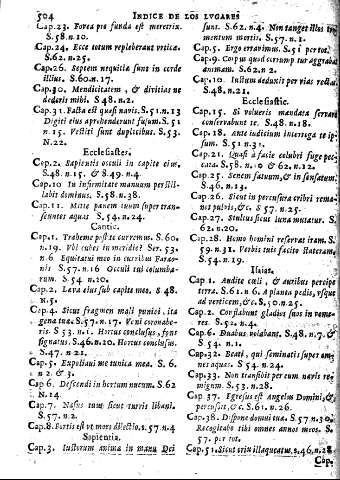 504 INDICE DE LOS LVGARES
Cap.23. Fovea profunda est meretrix.
S.58. n.10.
Cap.24. Ecce totum repleberant vrtica.
S.62. n.25.
Cap.26. Septem nequitia sunt in corde
illius. S.60. n.17.
Cap.30. Mendicitatem, & divitias ne
dederis mihi. S.48. n.2.
Cap.31. Facta est quasi navis. S.51. n.13
Digiti eius aprehenderunt fusum. S.51
n.15. Vestiti sunt duplicibus. S.53.
N.22.
Ecclesiastes.
Cap.2. Sapientis occuli in capite eius.
S.48. n.15. & S.49. n.4.
Cap.10 In infirmitate manuum perstil-
labit dominus. S.58. n.38.
Cap.11. Mitte panem tuum super tran-
seuntes aquas S.54. n.24.
Cantic.
Cap.1. Trahe me post te curremus. S.60.
n.19. Vbi cubes in meridie? Ser. 53.
n.6 Equitatui meo in curribus Farao-
nis S.57. n.16 Occuli tui columba-
rum. S.54 n.20.
Cap.2. Læva eius sub capite meo. S 48.
N.5.
Cap.4. Sicut fragmen mali punici, ita
gena tua. S.57. n.17. Veni coronabe-
ris S 53. n.1. Hortus conclusus, fons
signatus. S.46. n.20. Hortus conclusus.
S.47. n 21.
Cap.5. Expoliavi me tunica mea. S. 6.
n 2. & 3.
Cap 6. Descendi in hortum nucum. S.62
N.14
Cap.7. Nasus tuus sicut turris libani.
S.57. n 2.
Cap.8. Fortis est vt mors dilectio. s.57. n.4
Sapientia.
Cap.3. Iustorum anima in manu Dei
sunt. S.62. n.4. Non tanget illos tor-
mentum mortis. S.57. n.1.
Cap.5. Ergo erravimus. S.5 per tot.
Cap.9. Corpus quod corrumpitur aggravat
animam. S.62. n 2.
Cap.10. Iustum deduxit per vias rectas.
S.48. n.21.
Ecclesiastic.
Cap.15. Si volueris mandata servare
conservabunt te. S.48. n.18.
Cap.18. Ante iudicium interroga te ip-
sum. S.51 n.31.
Cap.21. Quasi à facie colubri fuge pec-
cata. S.58. n.10 & 62. n.12.
Cap.25. Senem fatuum, & insensatum.
S.46. n.13.
Cap.26. Sicut in percussura cribri rema-
net pulvis, &c. S 57. n.25.
Cap.27. Stultus sicut luna mutatur. S.
62. n.20.
Cap.28. Homo homini reservat iram. S.
59. n.31. Verbis tuis facito stateram.
S.54. n.19.
Isaias.
Cap 1. Audite cœli, & auribus percipe
terra. S.61. n.6. A planta pedis, vsque
ad verticem, & c. S.50. n.25.
Cap.2. Conflabunt gladios suos in vome-
res. S.52. n.4.
Cap.6. Duabus volabant. S.48. n.7. &
S.54. n.1.
Cap.32. Beati, qui seminatis super om-
nes aquas. S 54. n.24.
Cap.33. Non transibit per eum navis re-
migum. S.53. n.28.
Cap 37. Egresus est Angelus Domini, &
percussit, & c. S.61. n.26.
Cap.38. Dispone domui tua. S 57 n.30.
Recogitabo tibi omnes annos meos. S.
57. per tot.
Cap.51. Sicut orix illaqueatus. s.46. n.28
Cap.